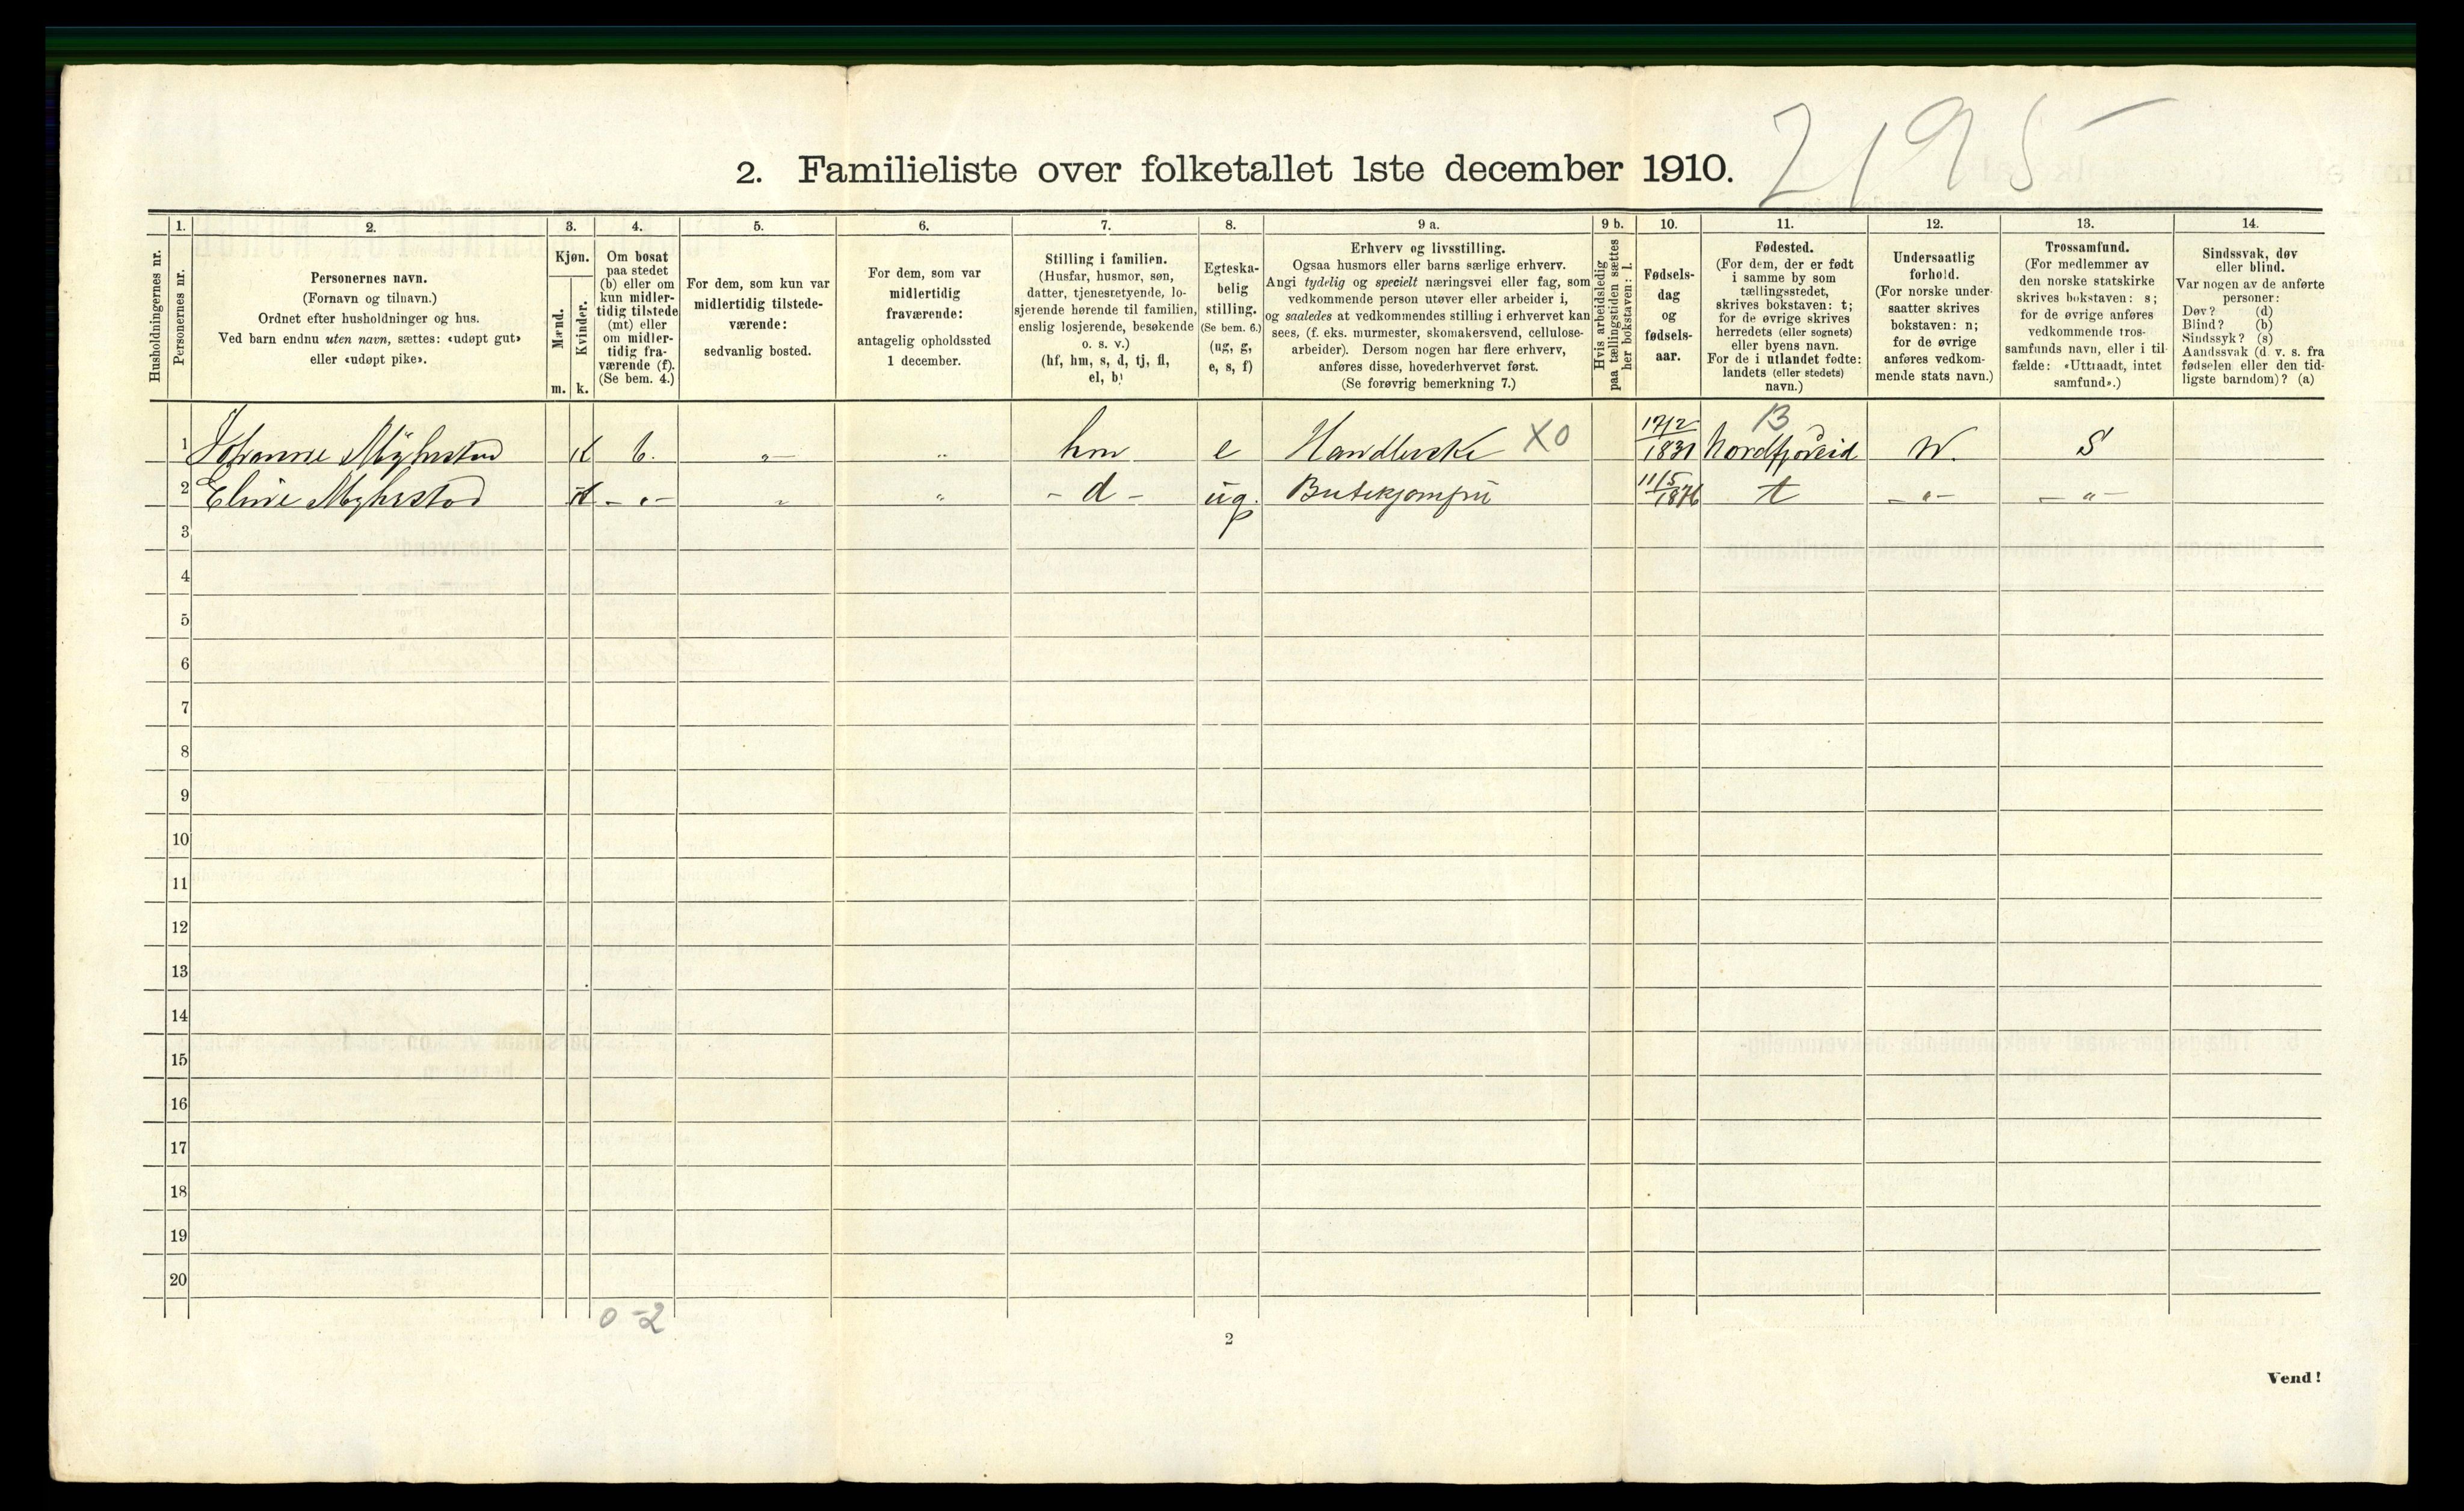 2195-
2. Familieliste over folketallet 1ste december 1910.
Husholdningernes nr.
1.
Personernes nr.
2.
Personernes navn.
(Fornavn og tilnavn.)
Ordnet efter husholdninger og hus.
Ved barn endnu uten navn, sættes: «udøpt gut»
eller «udøpt pike».
3.
Kjøn.
Mænd.
Kvinder.
m. k.
4.
Om bosat
paa stedet
(b) eller om
kun midler-
tidig tilstede
(mt) eller
om midler-
tidig fra-
værende (f).
(Se bem. 4.)
5.
For dem, som kun var
midlertidig tilstede-
værende:
sedvanlig bosted.
6.
For dem, som var
midlertidig
fraværende:
antagelig opholdssted
1 december.
7.
Stilling i familien.
(Husfar, husmor, søn,
datter, tjenestetyende, lo-
sjerende hørende til familien,
enslig losjerende, besøkende
o. s. v.)
(hf, hm, s, d, tj, fl,
el, b)
8.
Egteska-
belig
stilling.
(Se bem. 6.)
(ug, g,
e, s, f)
9 a.
Erhverv og livsstilling.
Ogsaa husmors eller barns særlige erhverv.
Angi tydelig og specielt næringsvei eller fag, som
vedkommende person utøver eller arbeider i,
og saaledes at vedkommendes stilling i erhvervet kan
sees, (f. eks. murmester, skomakersvend, cellulose-
arbeider). Dersom nogen har flere erhverv,
anføres disse, hovederhvervet først.
(Se forøvrig bemerkning 7.)
9 b.
Hvis arbeidsledig
paa tællingstiden sættes
her bokstaven: l.
10.
Fødsels-
dag
og
fødsels-
aar.
11.
Fødested.
(For dem, der er født
i samme by som
tællingsstedet,
skrives bokstaven: t;
for de øvrige skrives
herredets (eller sognets)
eller byens navn.
For de i utlandet fødte:
landets (eller stedets)
navn.)
12.
Undersaatlig
forhold.
(For norske under-
saatter skrives
bokstaven: n;
for de øvrige
anføres vedkom-
mende stats navn.)
13.
Trossamfund.
(For medlemmer av
den norske statskirke
skrives bokstaven: s;
for de øvrige anføres
vedkommende tros-
samfunds navn, eller i til-
fælde: «Uttraadt, intet
samfund».)
14.
Sindssvak, døv
eller blind.
Var nogen av de anførte
personer:
Døv? (d)
Blind? (b)
Sindssyk? (s)
Aandssvak (d. v. s. fra
fødselen eller den tid-
ligste barndom)? (a)
1 Johanne Myhrstad K b. „ „ hm e Handlerske X0 17/2 1831 B Nordfjordeid N. S
2 Eline Myhrstad K - „ - „ „ - d - ug. Butikjomfru 11/5 1876 t - „ - - „ -
3
4
5
6
7
8
9
10
11
12
13
14
15
16
17
18
19
20
0-2
2
Vend!